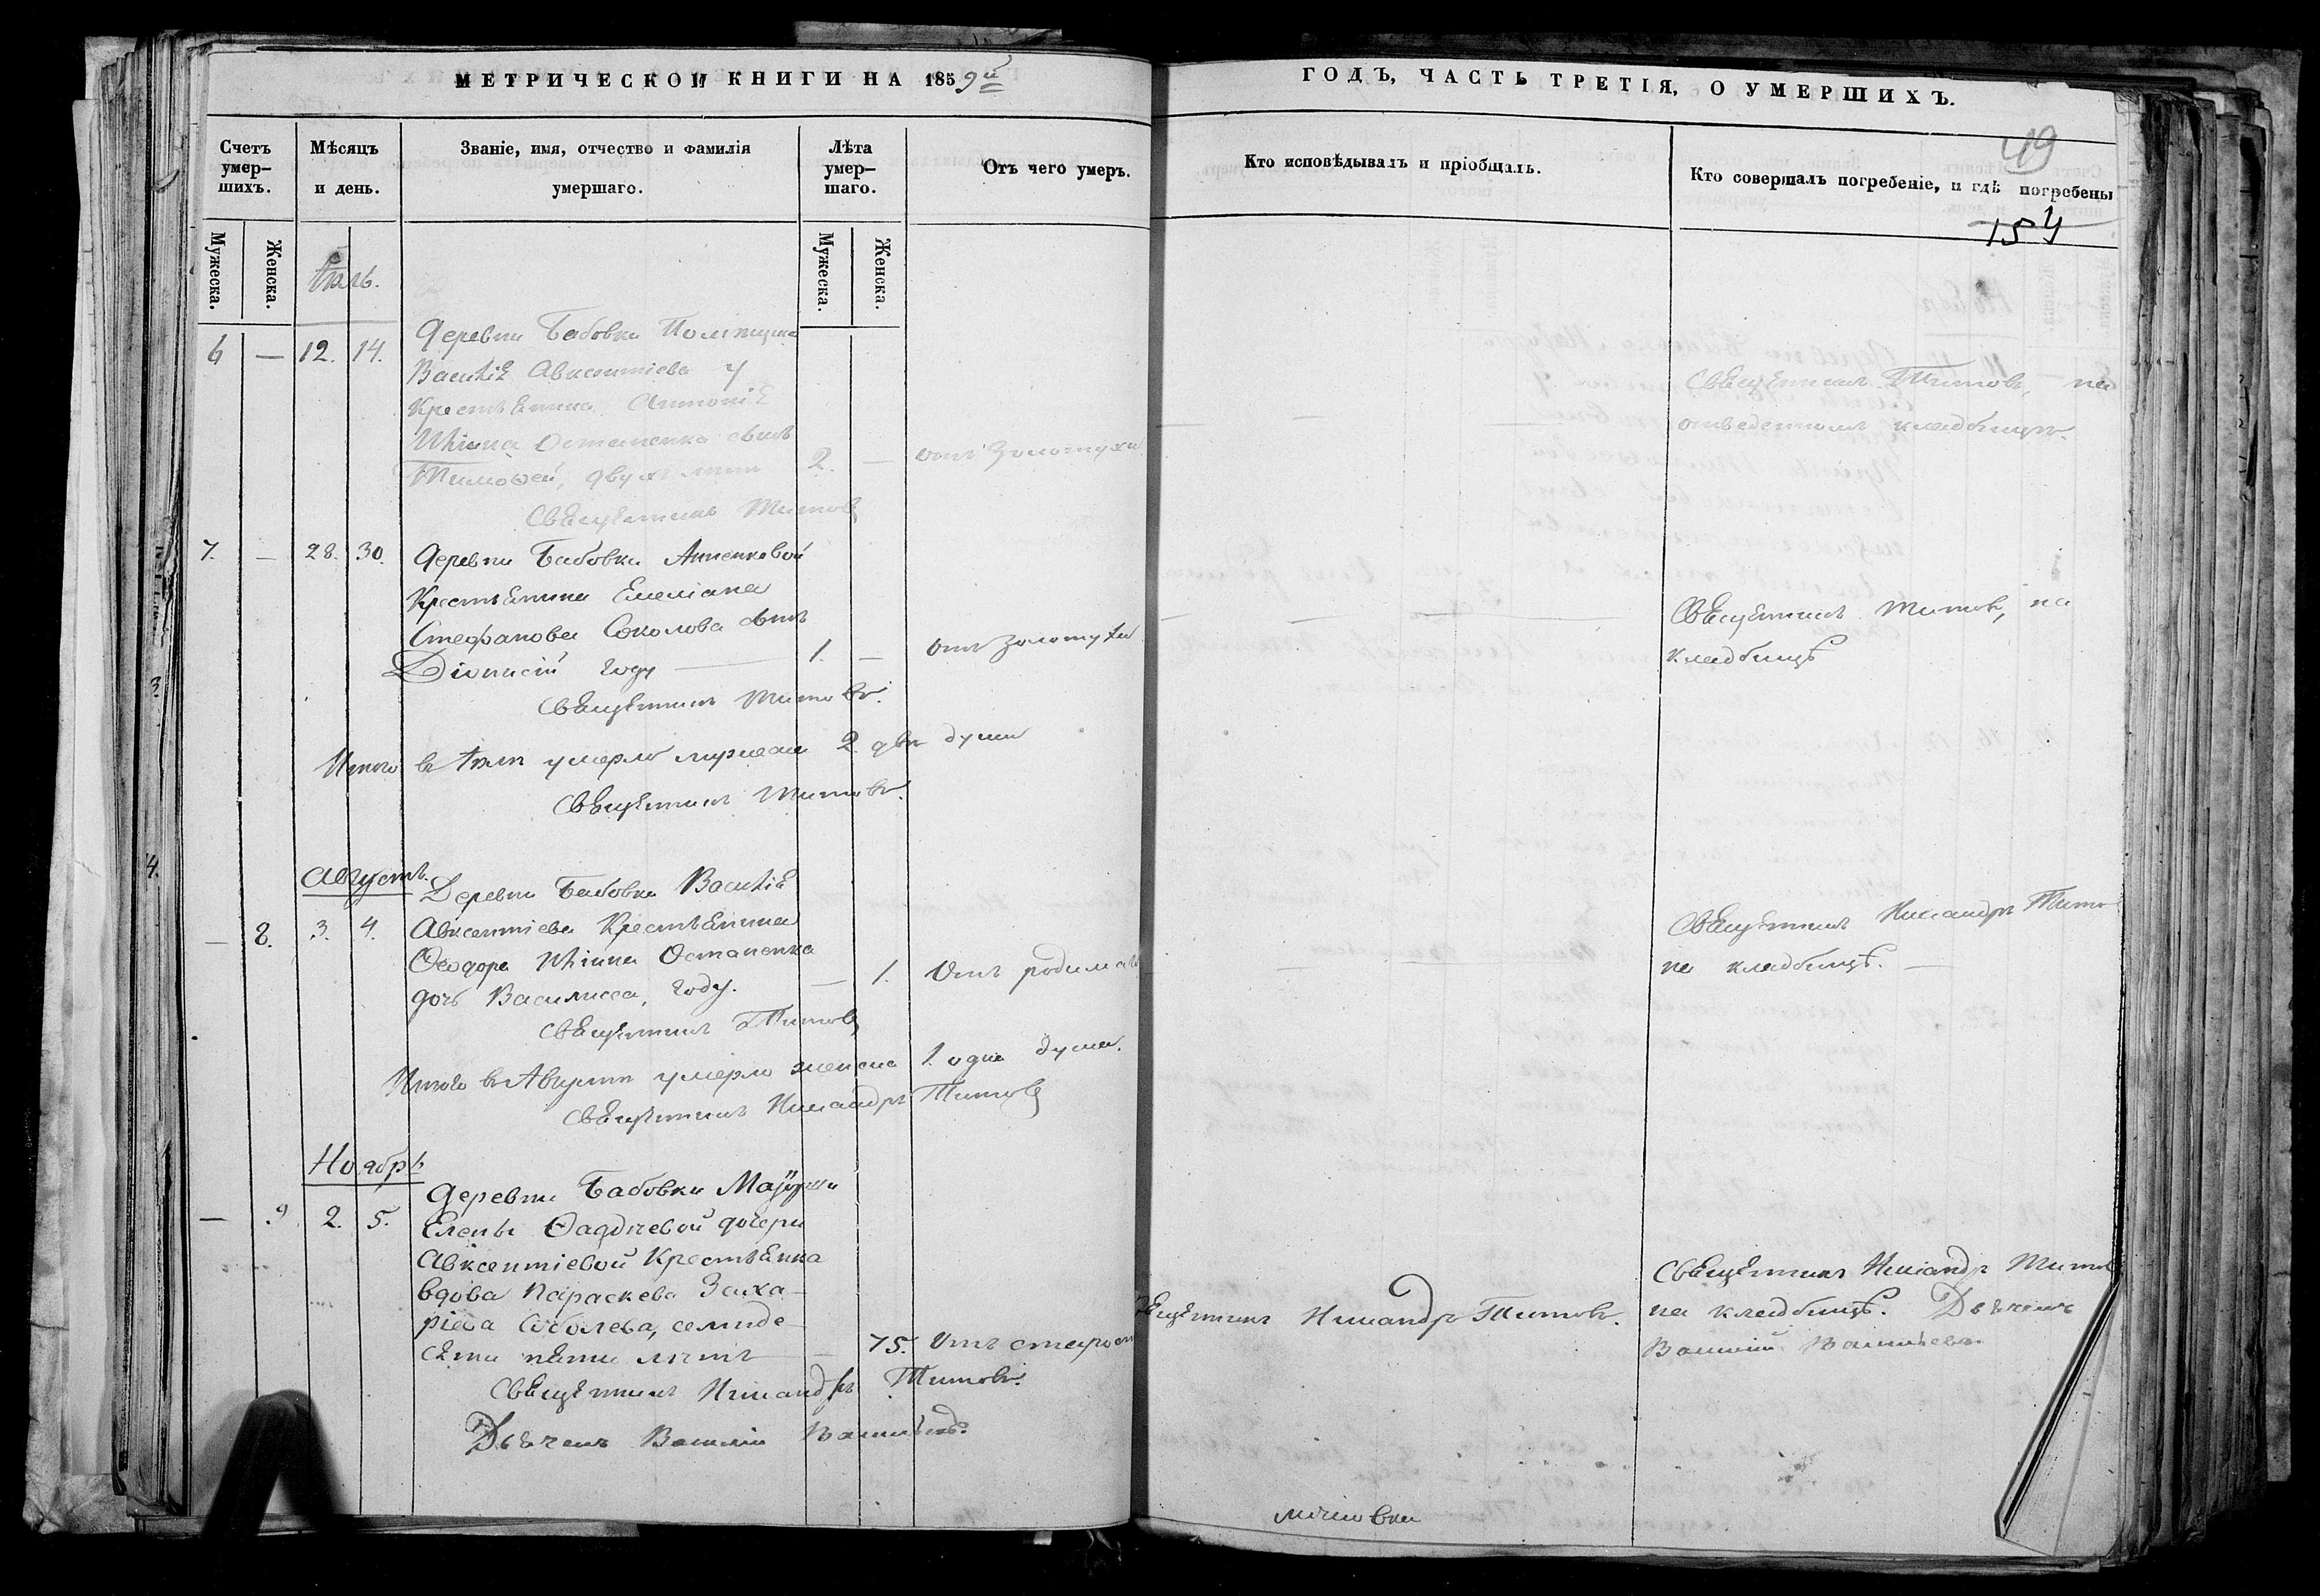 МЕТРИЧЕСКОЙ КНИГИ НА 1859й
Счетъ умер-шихъ.
Мѣсяцъ и день.
Званіе, имя, отчество и фамилія умершаго.
Лѣта умер-шаго.
Отъ чего умеръ.
Мужеска.
Женска.
Мужеска.
Женска.
Іюль.
6 — 12. 14.
Деревни Бабовки
Василія Авксентіева
Крестьянина Антонія
Остапенка сынъ
Тимоѳей, двухъ лѣтъ 2. — отъ золотухи
Священникъ Титовъ
7. — 28. 30. Деревни Бабовки Анненковой
Крестьянина Емеліана
Стефанова Соколова сынъ
Діонисій году — 1. — отъ золотухи
Священникъ Титовъ.
Итого въ Іюлѣ умерло мужеска 2. двѣ души
Священникъ Титовъ.
Августъ.
Деревни Бабовки Василія
— 8. 3. 4. Авксентіева Крестьянина
Ѳеодора Остапенка
дочь Василисса, году. — 1. Отъ родимца
Священникъ Титовъ
Итого въ Августѣ умерло женска 1. одна душа.
Священникъ Никандръ Титовъ
Ноябрь
Деревни Бабовки Маіорши
— 9. 2. 5. Елены Ѳаддѣевой дочери
Авксентіевой Крестьянка
вдова Параскева Заха-
ріева Соболева, семиде-
сяти пяти лѣтъ — 75. Отъ старости
Священникъ Никандръ Титовъ.
Дьячекъ Василій Васильевъ.
ГОДЪ, ЧАСТЬ ТРЕТІЯ, О УМЕРШИХЪ.
49
Кто исповѣдывалъ и пріобщалъ.
Кто совершалъ погребеніе, и гдѣ погребены
154
Священникъ Титовъ, на
отведенномъ кладбищѣ.
Священникъ Титовъ, на
кладбищѣ
Священникъ Никандръ Титовъ
на кладбищѣ. —
Священникъ Никандръ Титовъ.
Священникъ Никандръ Титовъ
на кладбищѣ. Дьячекъ
Василій Васильевъ.